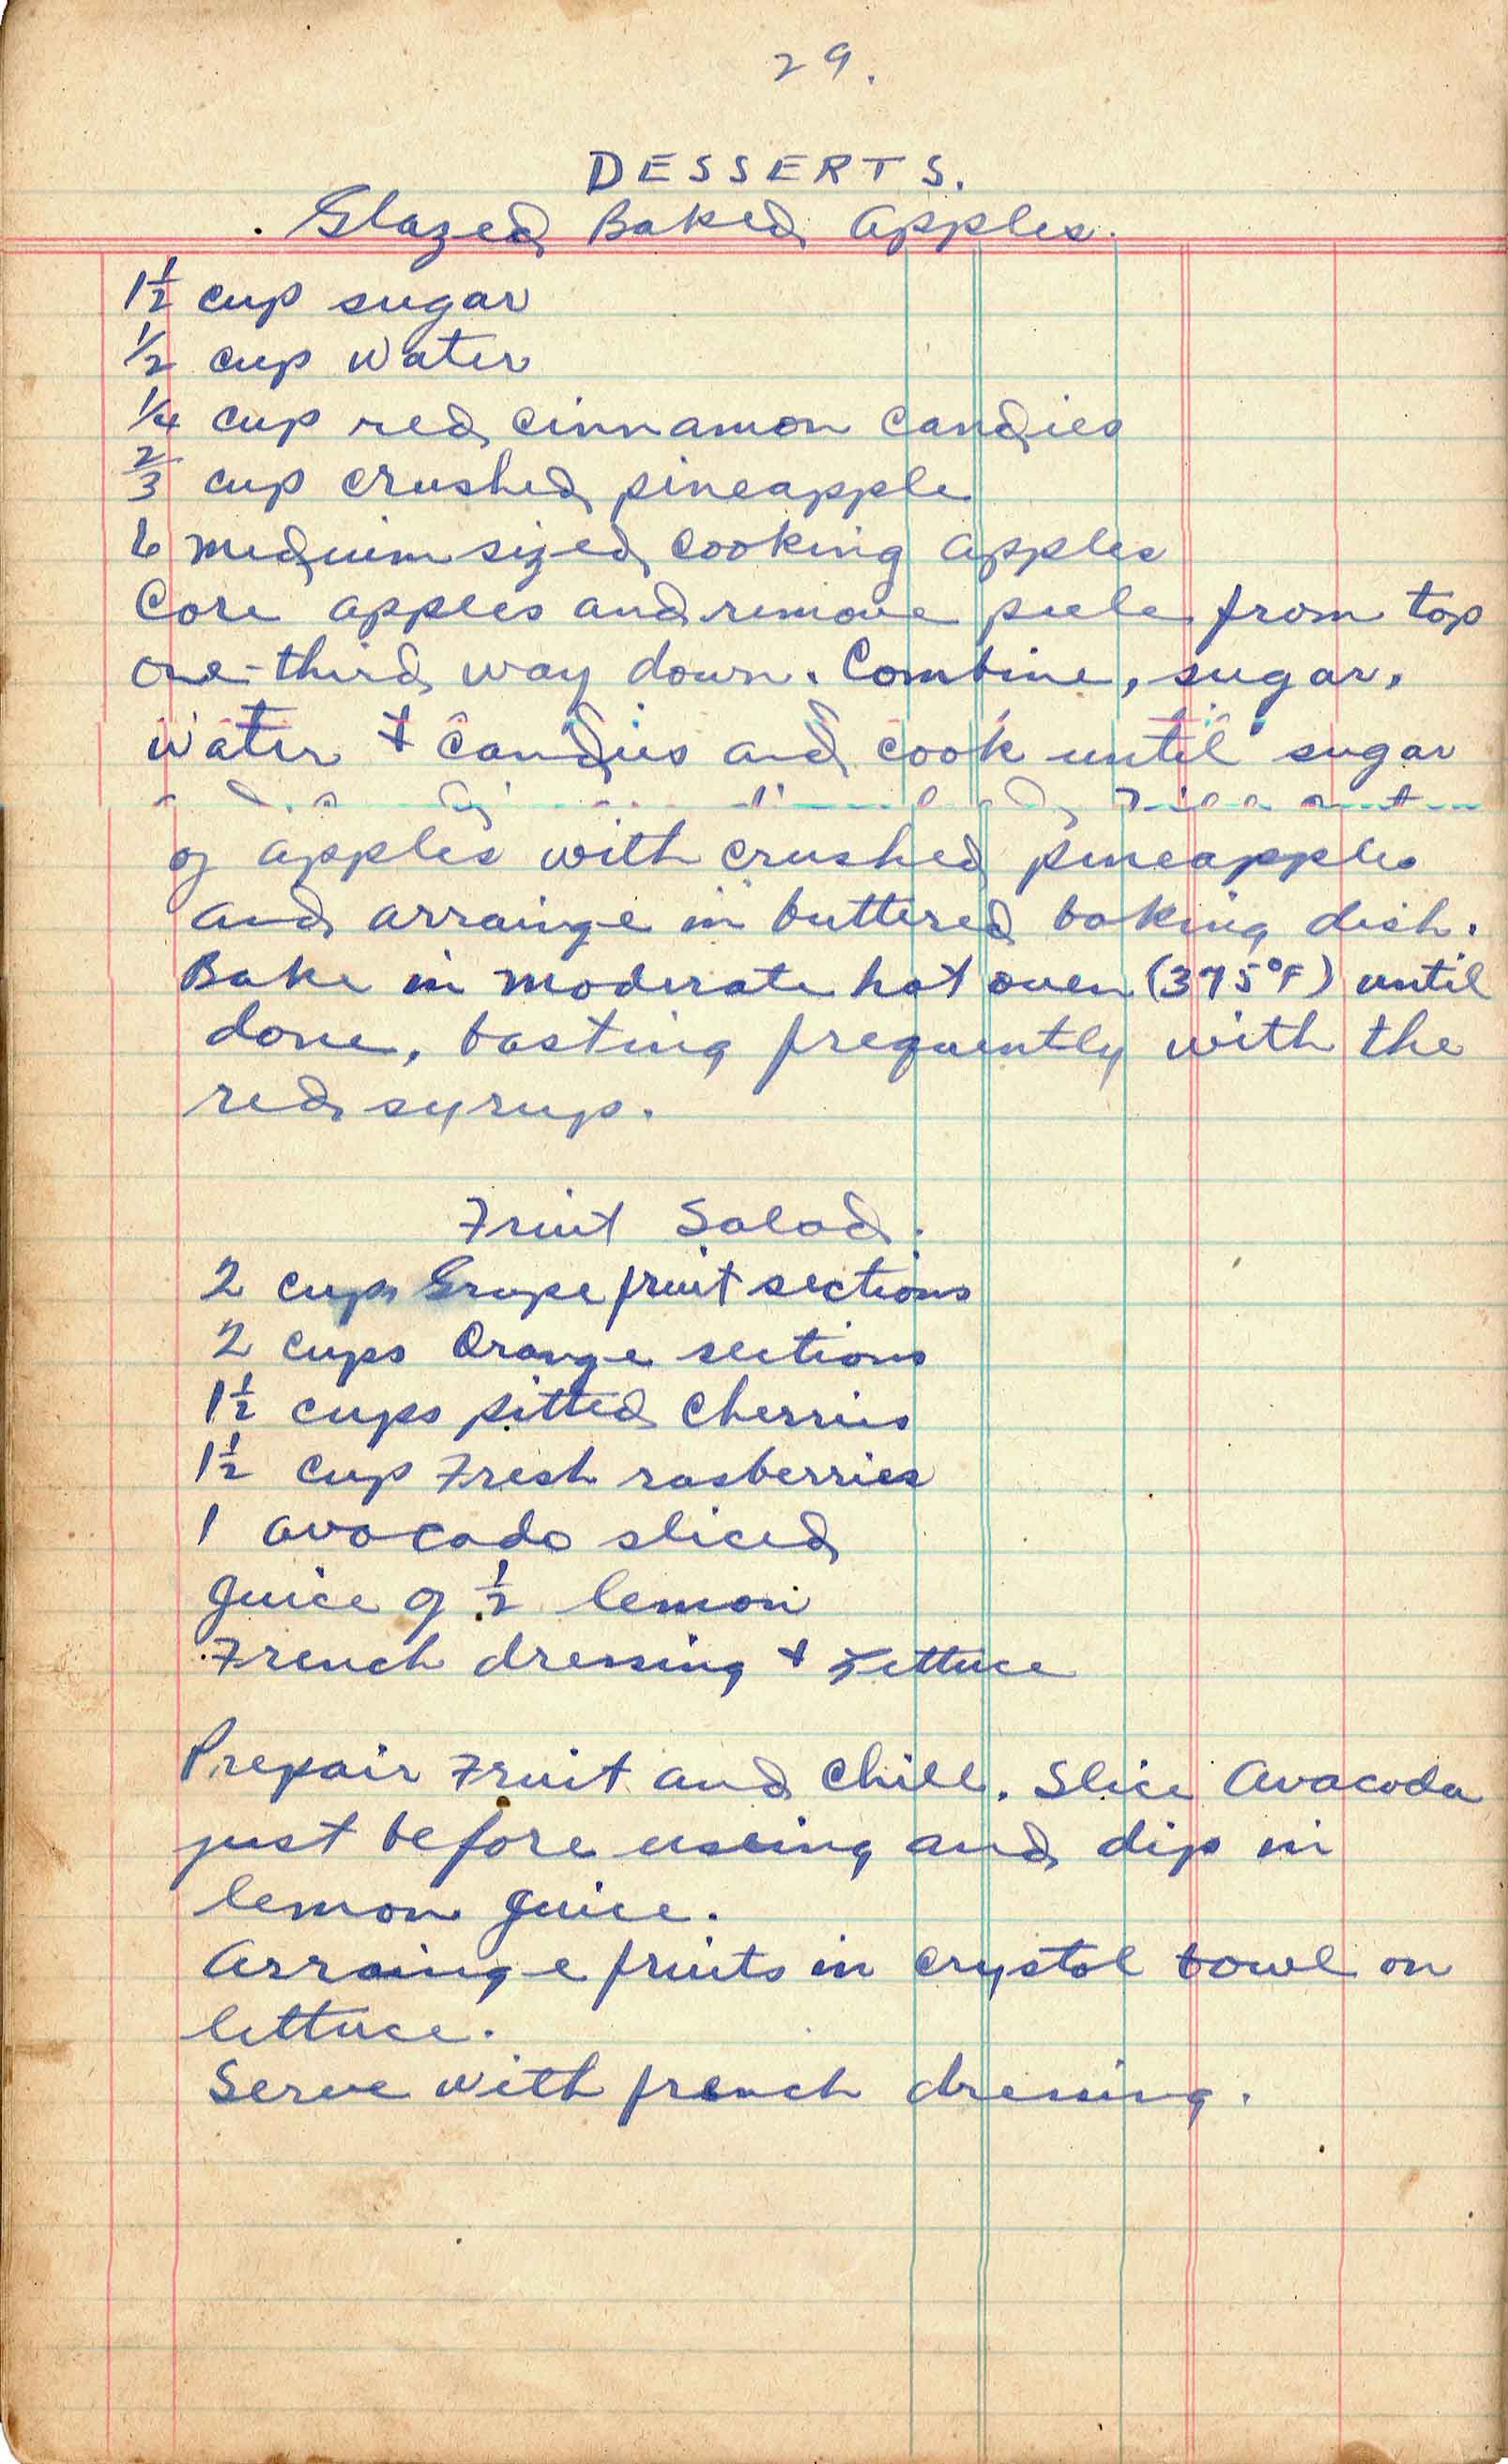 29.
DESSERTS.
Glazed Baked Apples.
1½ cup sugar
½ cup water
¼ cup red cinnamon candies
⅔ cup crushed pineapple
6 medium sized cooking apples
Core apples and remove peele from top
one-third way down. Combine, sugar,
water & candies and cook until sugar
of apples with crushed pineapple
and arrainge in buttered baking dish.
Bake in moderate hot oven (375°F) until
done, basting frequently with the
red syrup.
Fruit Salad.
2 cups Grapefruit sections
2 cups Orange sections
1½ cups pitted Cherries
1½ cup Fresh rasberries
1 avocado sliced
Juice of ½ lemon
French dressing & Lettuce
Prepair Fruit and Chill. Slice Avacoda
just before useing and dip in
lemon juice.
Arrainge fruits in crystal bowl on
lettuce.
Serve with french dressing.